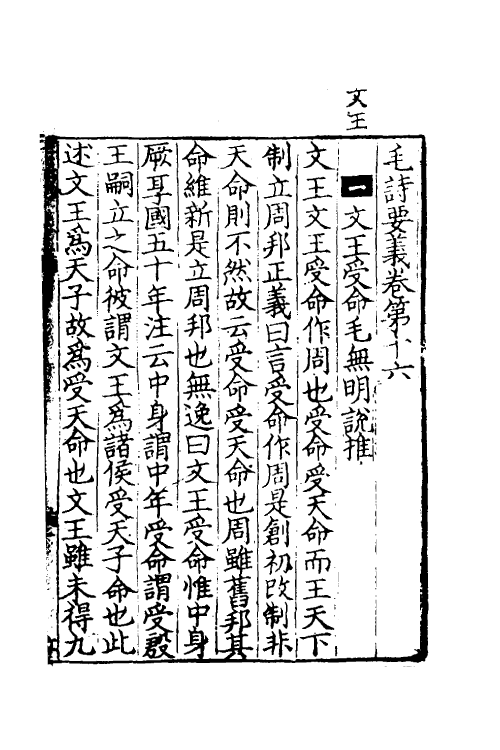 文王
毛詩要義卷第十六
一文王受命毛無明說推
文王文王受命作周也受命受天命而王天下
制立周邦正義曰言受命作周是創初改制非
天命則不然故云受命受天命也周雖舊邦其
命維新是立周邦也無逸曰文王受命惟中身
厥享國五十年注云中身謂中年受命謂受殷
王嗣立之命彼謂文王為諸侯受天子命也此
述文王為天子故為受天命也文王雖未得九